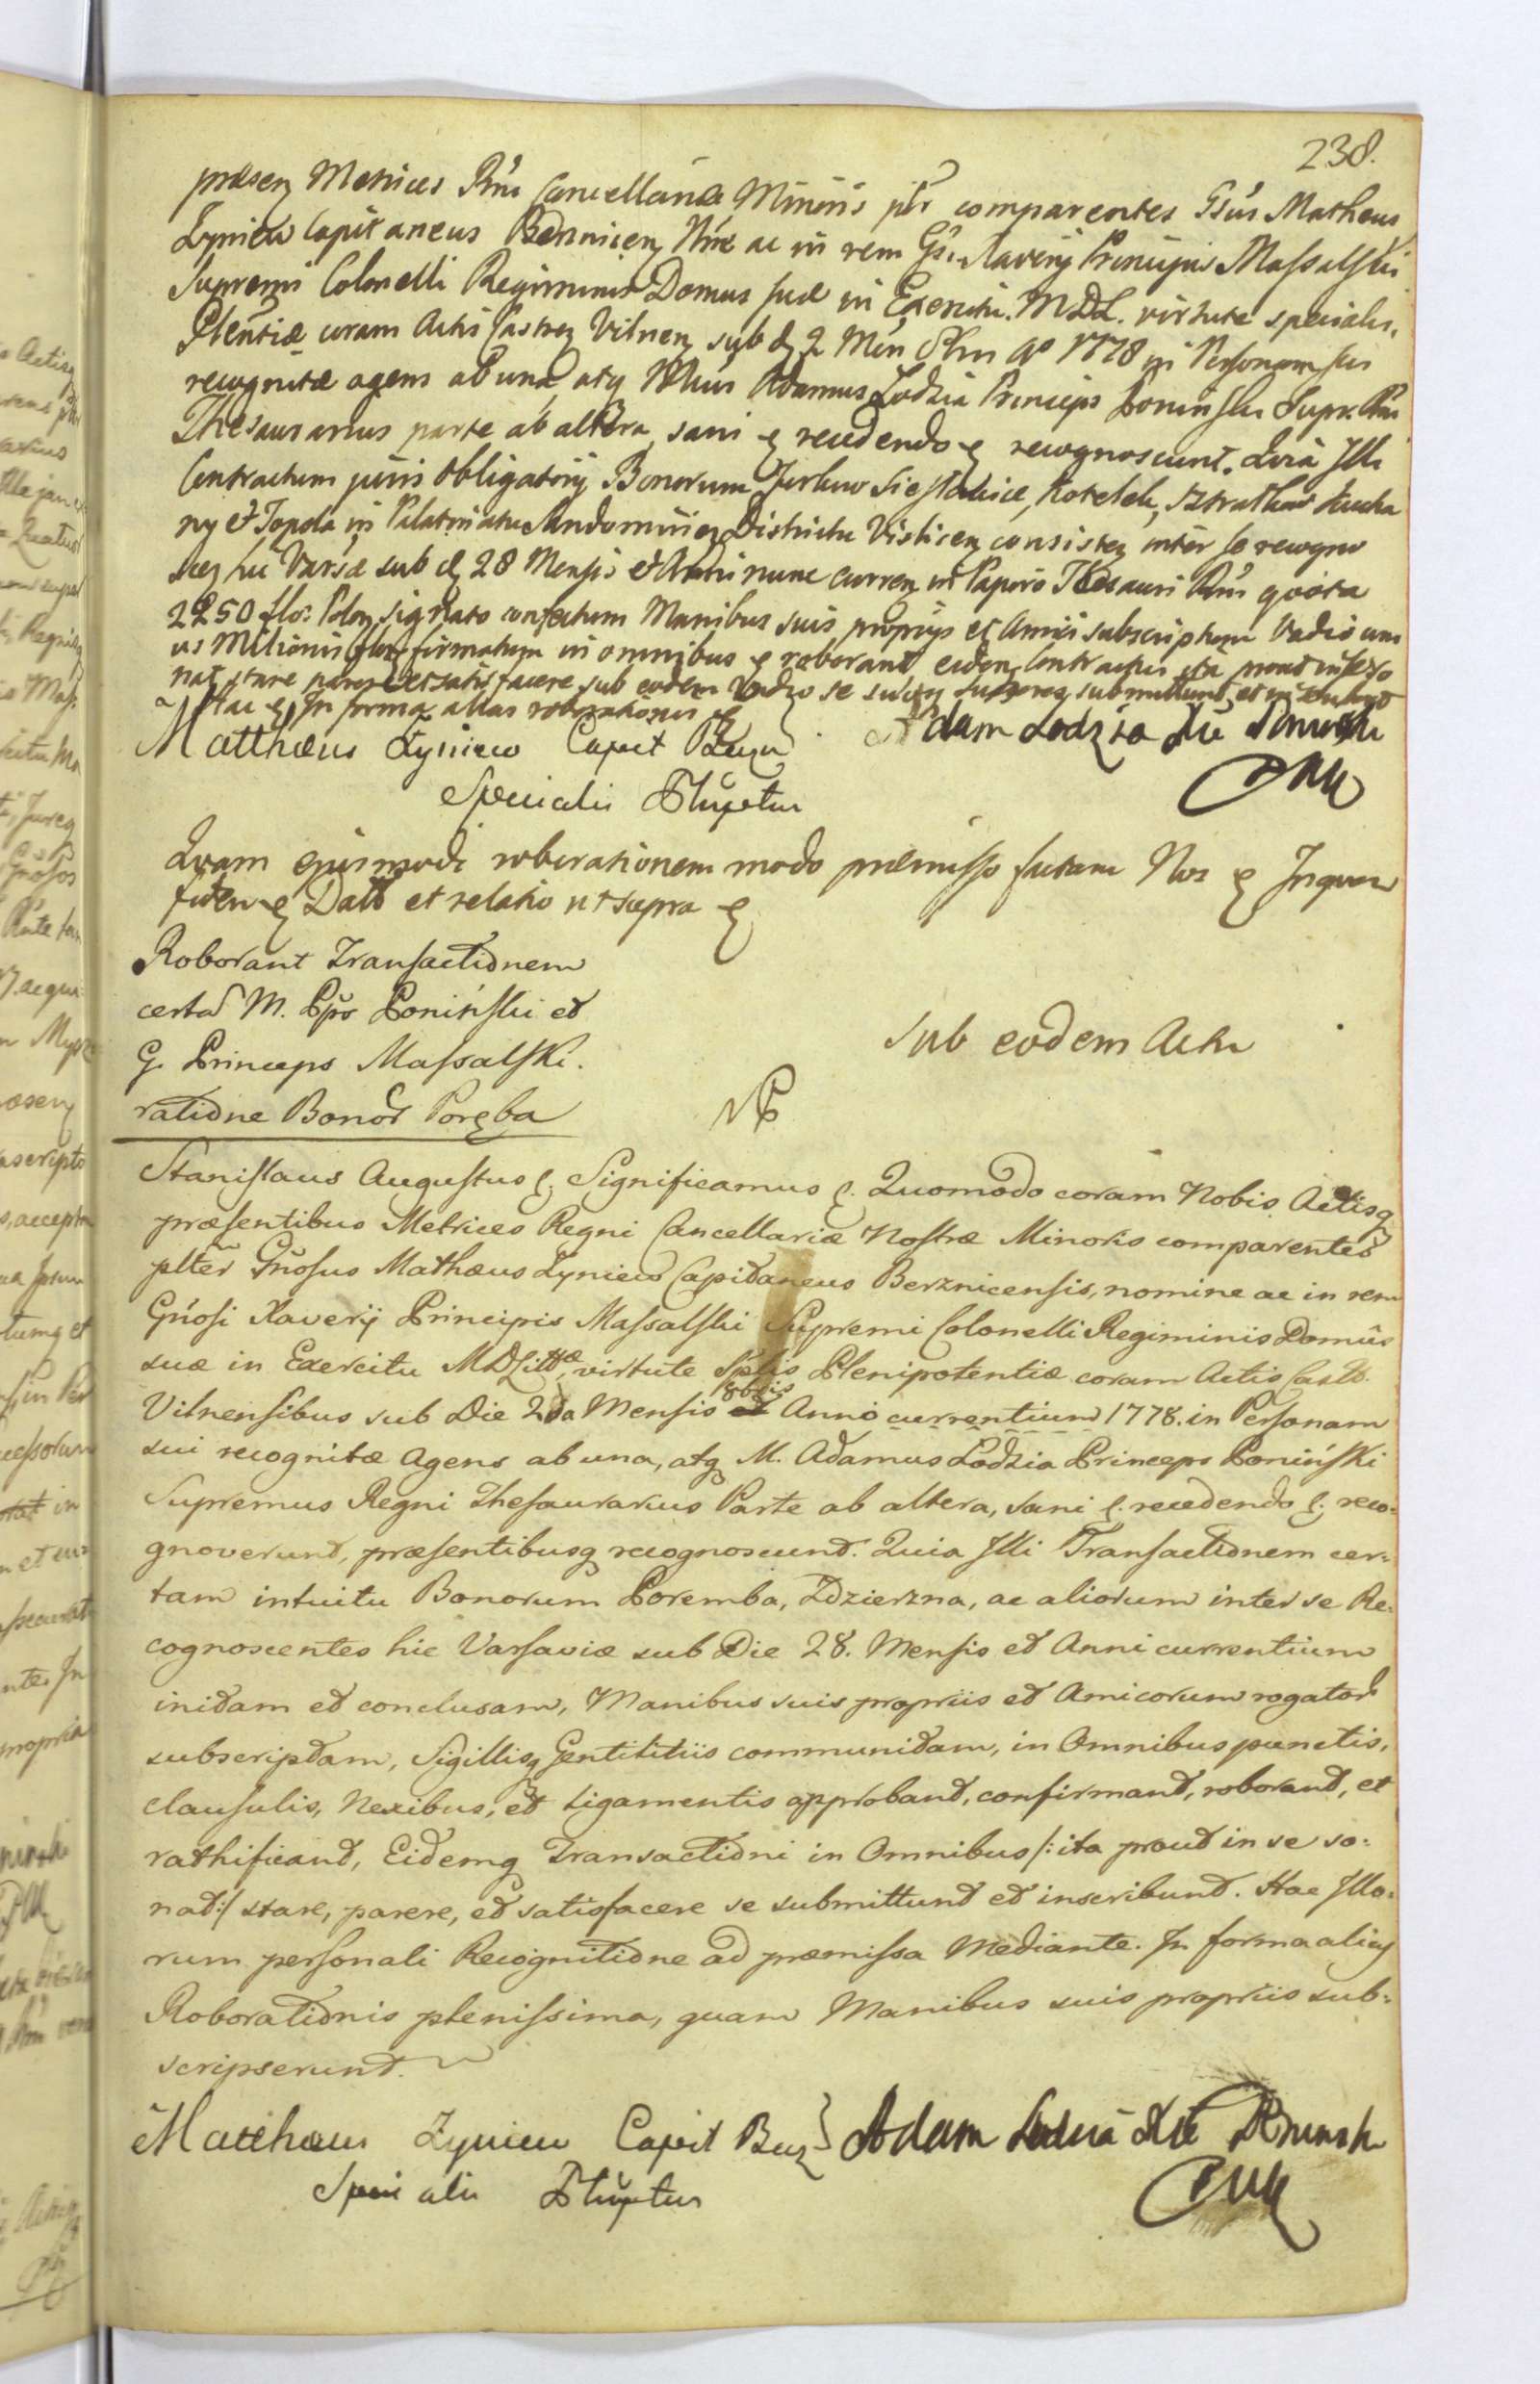 238.
præsen Metrices Rni Cancellariæ Minoris plr comparentes Gsus Matheus
Zyniew Capitaneus Bernnicen Nne ac in rem Gsi Xaverij Principis Massalski
Supremi Colonelli Regiminis Domus suæ in Exercitu. M.D.L. virtute specialis.
Plentiæ coram Actis Castren Vilnen sub d 2 Men 8bris Ao 1778 in Personam sui
recognitæ agens ab una, atq Adamus Lodzia Princeps Poninski Supr. Rni
Thesaurarius parte ab altera, sani recedendo recognoscunt. Quia Illi
Contractum juris Obligatorij Bonorum Jurkow Sieslawice, Kotelek,
ny et Topola in Palatinatu Sandomirien Districtu Vislicen consisten inter se recogno
scen hic Varsæ sub d 28 Mensis et Anni nunc curren in Papiro Thesauri Rni quota
2250 flor: Polon signato confectum Manibus suis proprijs et Amici subscriptum Vadio uni
us Milionis flor firmatum in omnibus roborant eidem Contractui ita prout in se so
nat, stare parere et satisfacere sub eodem Vadio se submittunt et
Hac In forma alias roborationis
Matthæus Zyniew Capit Adam Lodzia Xże Poninski
Specialis Plnptus PWK
Quam ejusmodi roborationem modo præmisso factam Nos In quor
fidem Datt et relatio ut supra
Roborant Transactionem
certā M. Pps Poniński et
G. Princeps Massalski.
ratione Bonor Poręba
Sub eodem Actu
Stanislaus Augustus Significamus Quomodo coram Nobis Actisq
præsentibus Metrices Regni Cancellariæ Nostræ Minoris comparentes
plter Gnosus Mathæus Zyniew Capitaneus Berznicensis, nomine ac in rem
Gnosi Xaverij Principis Massalski Supremi Colonelli Regiminis Domûs
suæ in Exercitu MDLittæ, virtute Splis Plenipotentiæ coram Actis Castr.
Vilnensibus sub Die 2da Mensis 8bris Anno currentium 1778. in Personam
sui recognitæ Agens ab una, atq M. Adamus Lodzia Princeps Poniński
Supremus Regni Thesaurarius Parte ab altera, sani recedendo reco-
gnoverunt, præsentibusq recognoscunt. Quia Illi Transactionem cer-
tam intuitu Bonorum Poremba, Zdzierzna, ac aliorum inter se Re-
cognoscentes hic Varsaviæ sub Die 28. Mensis et Anni currentium
initam et conclusam, Manibus suis propriis et Amicorum rogator
subscriptam, Sigillisq Gentilitiis communitam, in Omnibus punctis,
clausulis, Nexibus, et Ligamentis approbant, confirmant, roborant, et
rathificant, Eidemq Transactioni in Omnibus /: ita prout in se so-
nat :/ stare, parere, et satisfacere se submittunt et inscribunt. Hac Illo-
rum personali Recognitione ad præmissa Mediante. In forma alias
Roborationis plenissima, quam Manibus suis propriis sub-
scripserunt.
Matthæus Zyniew Capit Berz Adam Lodzia Xże Poninski
Specialis Plnptus PWK